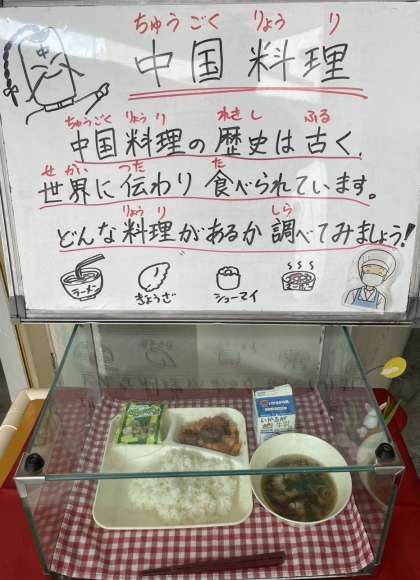 ちゅう ごく りょう り
中国料理
ちゅうごく りょう り れき し ふる
中国料理の歴史は古く、
せ かい つた た
世界に伝わり食べられています。
りょう り しら
どんな料理があるか調べてみましょう!
ラーメン
ぎょうざ
シューマイ
牛乳